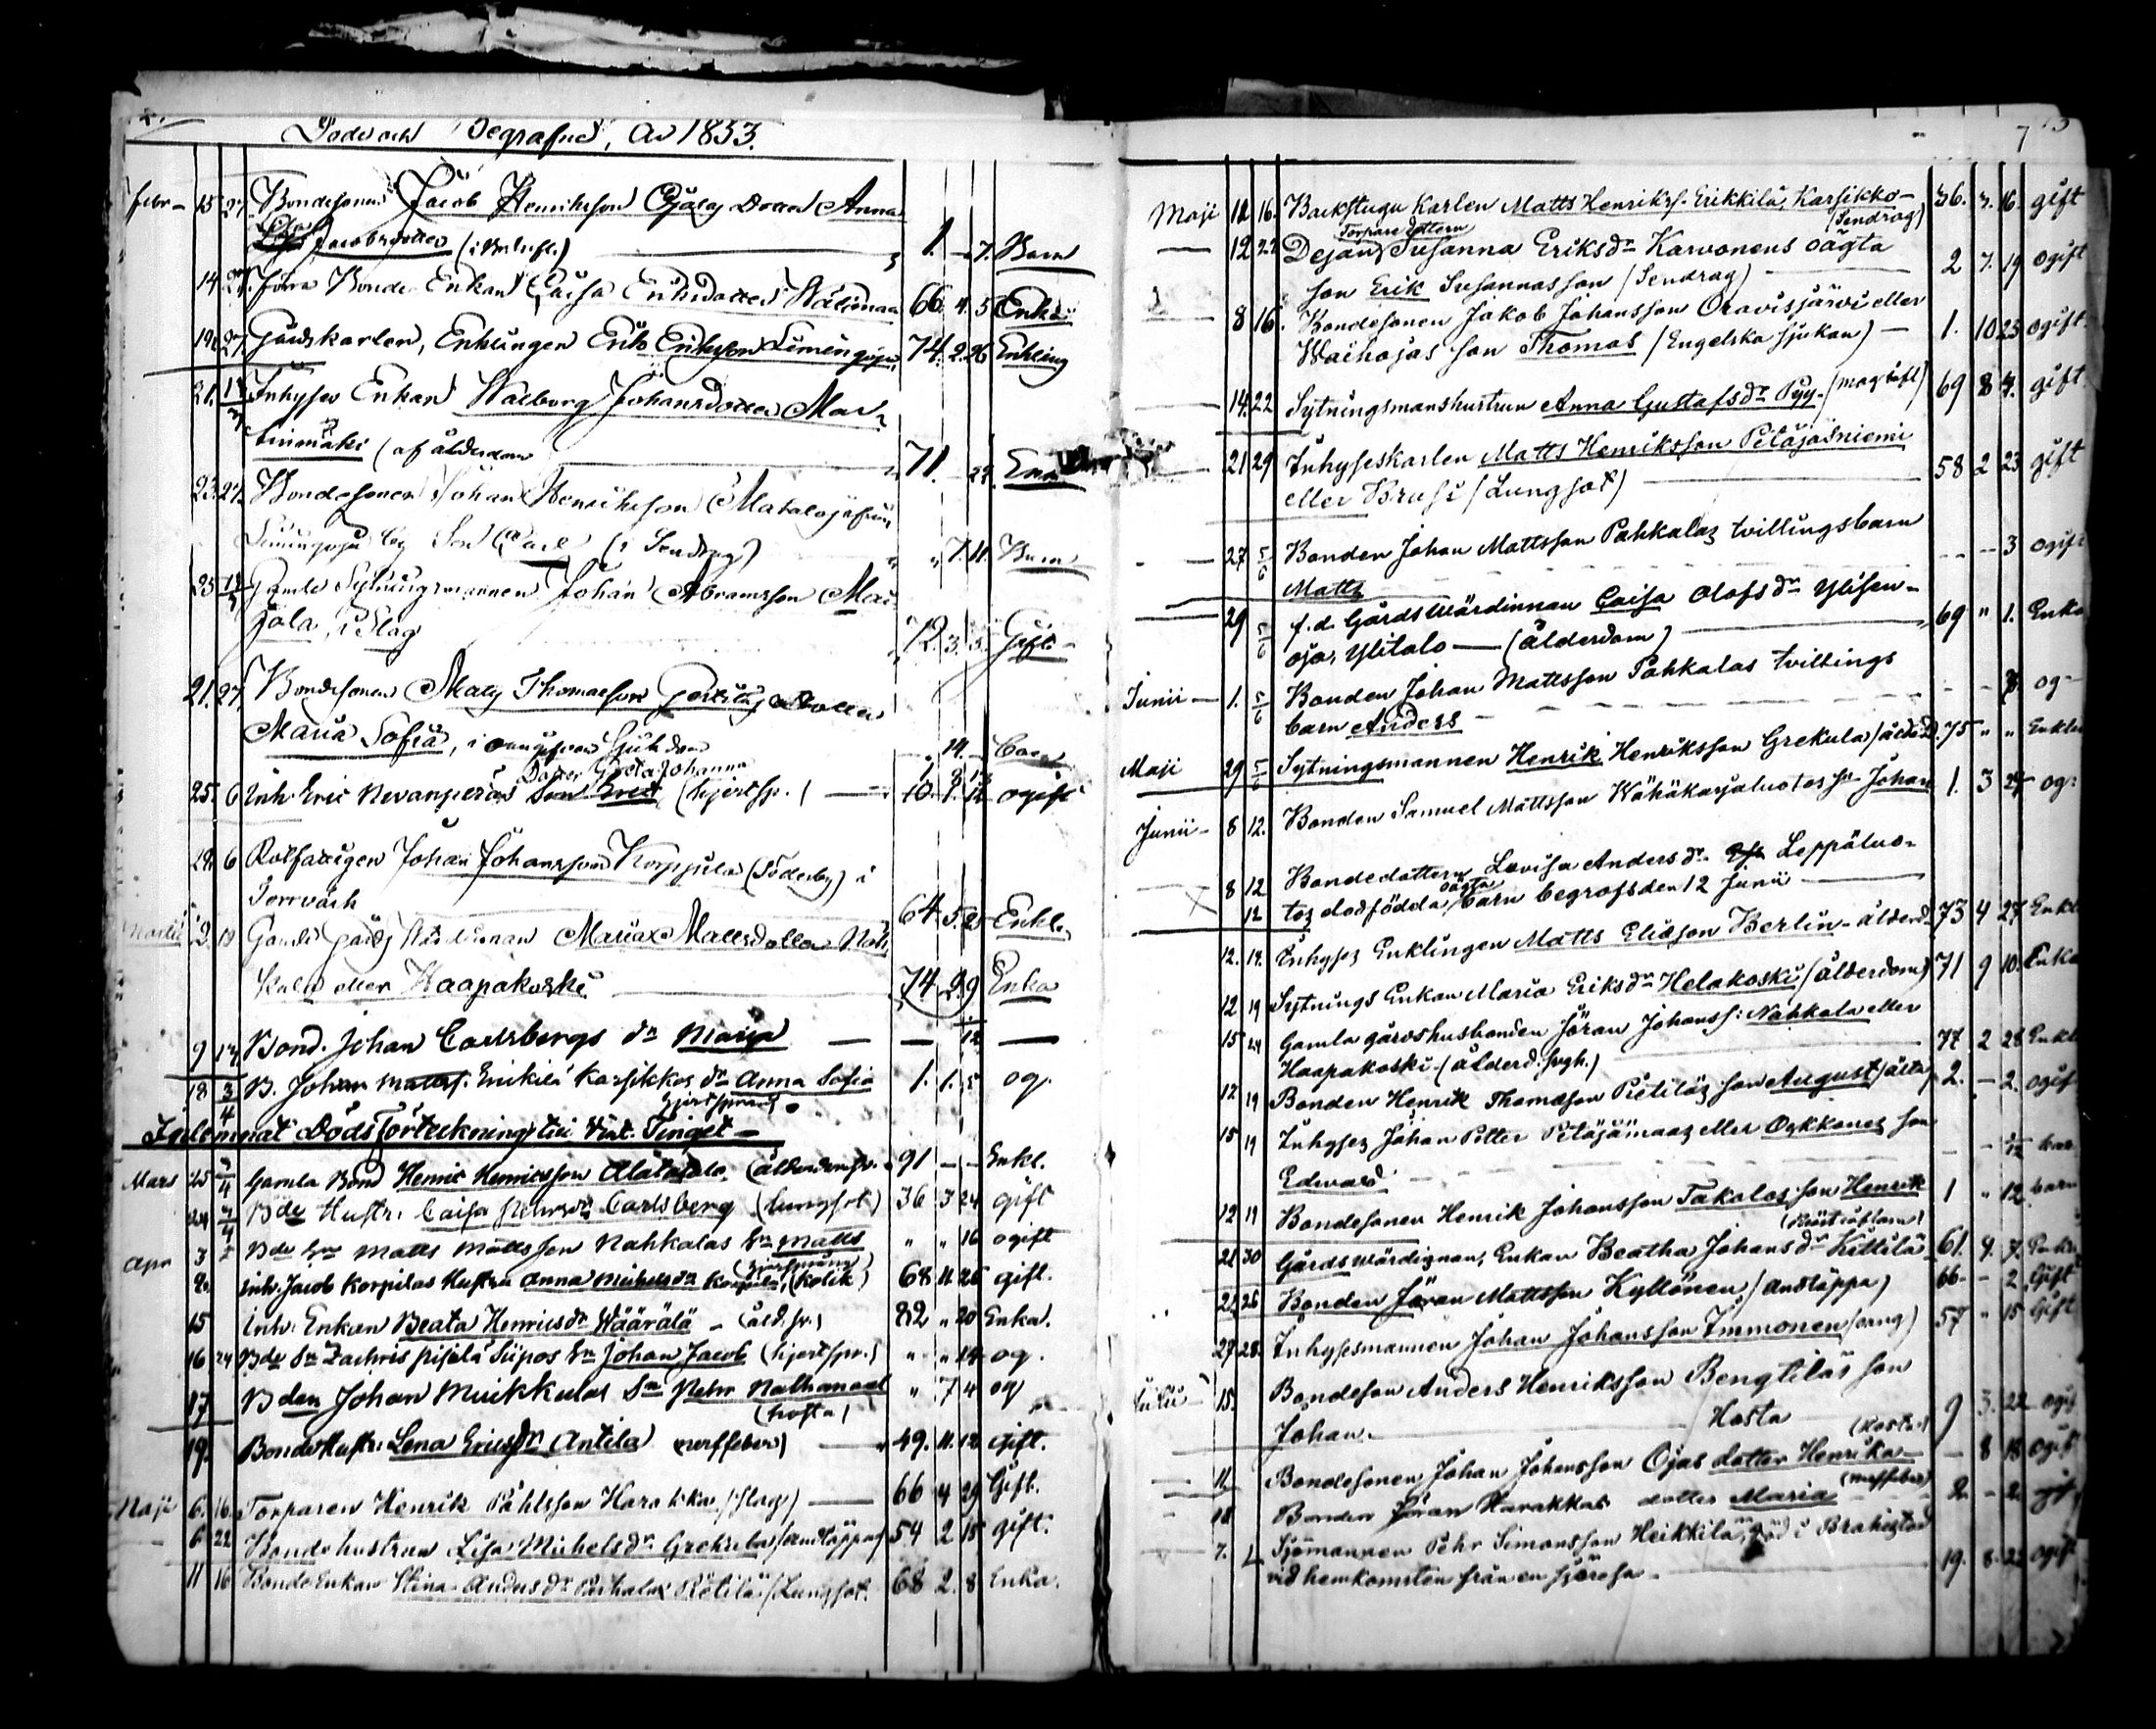 Döde och Begrafne, År 1853.
Febr - 15 27 Bondesonen Jacob Henrikson Ojalas Dotter Anna
Jacobsdotter 1. - 7. Barn
14 27. Förra Bonde Enkan Caisa Eriksdotter 66. 4. 5 Enka
19. 27. Gårdskarlen, Enklingen Erik Erikson Limingoja 74. 2. 26 Enkling
21. 13/3 Inhyses Enkan Walborg Johansdotter Mar-
tinmäki (af ålderdom 71. - 22. Enka
23. 27. Bondesonen Johan Henrikson
Limingoja Son Carl (i Sendrag) " 7. 11. Barn
25 13/3 Gamle Sytningsmannen Johan Abramsson Mar-
jola, i Slag 72. 3. 5. Gift -
21. 27. Bondesonen Matts Thomasson Dotter
Maria Sofia, i sjukdom - 14. - Barn
Dotter Greta Johanna 1. 8 13
25. 6 Inh. Eric Nevanperäs Son Eric (hjertspr.) 10. 1. 12 ogift
28. 6 Rotfattigen Johan Johansson Korppila (Söderby) i
Torrvärk 64. 5. 23 Enkl.
Martii 2. 13 Gamla Gårds Wärdinnan Maria Mattsdotter Nah-
kala eller Haapakoski 74 2. 9 Enka
9 13 Bond. Johan Carlsbergs dr Maria - - 12 -
18 3/4 B. Johan Matts. Erikilä Karsikkos dr Anna Sofia 1. 1. 5 og.
hjertsprång
Inlemnat Dödsförteckning till Vint. Tinget -
Mars 25 3/4 Gamla Bond Henric Henricsson Alatalo. (ålderdomsv. 91 - - Enkl.
24 3/4 Bde Hustr. Caisa Pehrsdr Carlsberg (lungsot) 36 3 24 gift
Apr 3 Bde Matts Mattsson Nahkalas Sn Matts " " 16 ogift
(hjertsprång)
8. Inh. Jacob Korpilas Hustru Anna Michelsdr Korpila, (kolik) 68 11. 26 gift.
15 Inh. Enkan Beata Henricsdr Wäärälä - (åld. sv.) 82 " 20 Enka.
16 24 Bde Sn Zachris Pisilä Siipos Sn Johan Jacob (hjertspr.) " " 14 og.
17 Bden Johan Muikkulas Sn Pehr Nathanael " 7 4 og
(hosta)
19. Bonde Hustr: Lena Ericsdr Antila nerffeber) 49. 11. 12 gift.
Maji 6. 16. Torparen Henrik Påhlsson Harakka (Slag) 66 4 29 Gift.
6 22 Bonde hustrun Lisa Michelsdr Grekula (andtäppa) 54 2 15 gift.
11 16 Bonde Enkan Stina Andersdr Pietilä (Lungsot. 68 2. 8 Enka.
7
Maji 12 16. Backstugu karlen Matts Henrikss. Erikkilä, Karsikko - 36. 3. 16. gift
(Sendrag)
Torpare dottern
12 22 Dejan Susanna Eriksdr Karvonens oägta
son Erik Susannasson (Sendrag) 2 7. 19 ogift
8 16. Bondesonen Jakob Johansson Oravisjärvi eller
Waihojas son Thomas (Engelska sjukan) - 1. 10 23 ogift.
14. 22 Sytningsmanshustrun Anna Gustafsdr Pyy. (magtift) 69 8 4. gift
21 29 Inhyseskarlen Matts Henriksson Petäjäsniemi
eller Krusi (Lungsot) 58 2 23 gift
27 5/6 Bonden Johan Mattsson Pahkalas tvillingsbarn
Matts - - - 3 ogift
29 5/6 f. d. Gårdswärdinnan Caisa Olofsdr Ylisen-
oja, Ylitalo - (ålderdom) 69 " 1. Enka
Junii - 1. 5/6 Bonden Johan Mattsson Pahkalas tvillings
barn Anders - - - 8. og -
Maji 29 5/6 Sytningsmannen Henrik Henriksson Grekula (ålderd. 75 " " Enkl
Junii - 8 12. Bonden Samuel Mattsson Wähäkarjaluotos sn Johan 1. 3 24 og:
8 12 Bondedottern Lovisa Andersdr Leppäluo-
12 tos dödfödda oägta barn begrofs den 12 Junii
12. 19. Inhyses Enklingen Matts Eliason Berlin - ålderd. 73 4 27 Enkl
12 19 Sytnings Enkan Maria Eriksdr Helakoski (ålderdom) 71 9 10. Enka
15 24 Gamla gårdshusbonden Jöran Johanss: Nahkala eller
Haapakoski - (ålderd. svgh.) 77 2 28 Enkl
12 19 Bonden Henrik Thomasson Pietiläs son August (älta) 2. - 2. ogift
15 19 Inhyses Johan Petter Petäjämaas eller Oykkones son
Edward - - 1/12 bar
12 19 Bondesonen Henrik Johansson Takalos son Henrik 1 " 12. barn
21 30 Gårdswärdinnan, Enkan Beatha Johansdr Kittilä 61. 9. 7. Enka
21 26 Bonden Jöran Mattsson Kyllönen (andtäppa) 66 - - 2. Gift
27. 28. Inhysesmannen Johan Johansson Immonen 57 " 15 Gift
Julii - 15. Bondeson Anders Henriksson Bengtiläs son
Johan. Hosta 9 3. 22 ogif
11. Bondesonen Johan Johansson Ojas dotter Henrika - (Hosta) - 8 18 ogift
18 Bonden Jöran Harakkas dotter Maria (nerffeber) 2. - 2.
7. Sjömannen Pehr Simonsson Heikkilä, död i Brahestad
vid hemkomsten från en sjöresa - 19. 8. 22 ogift